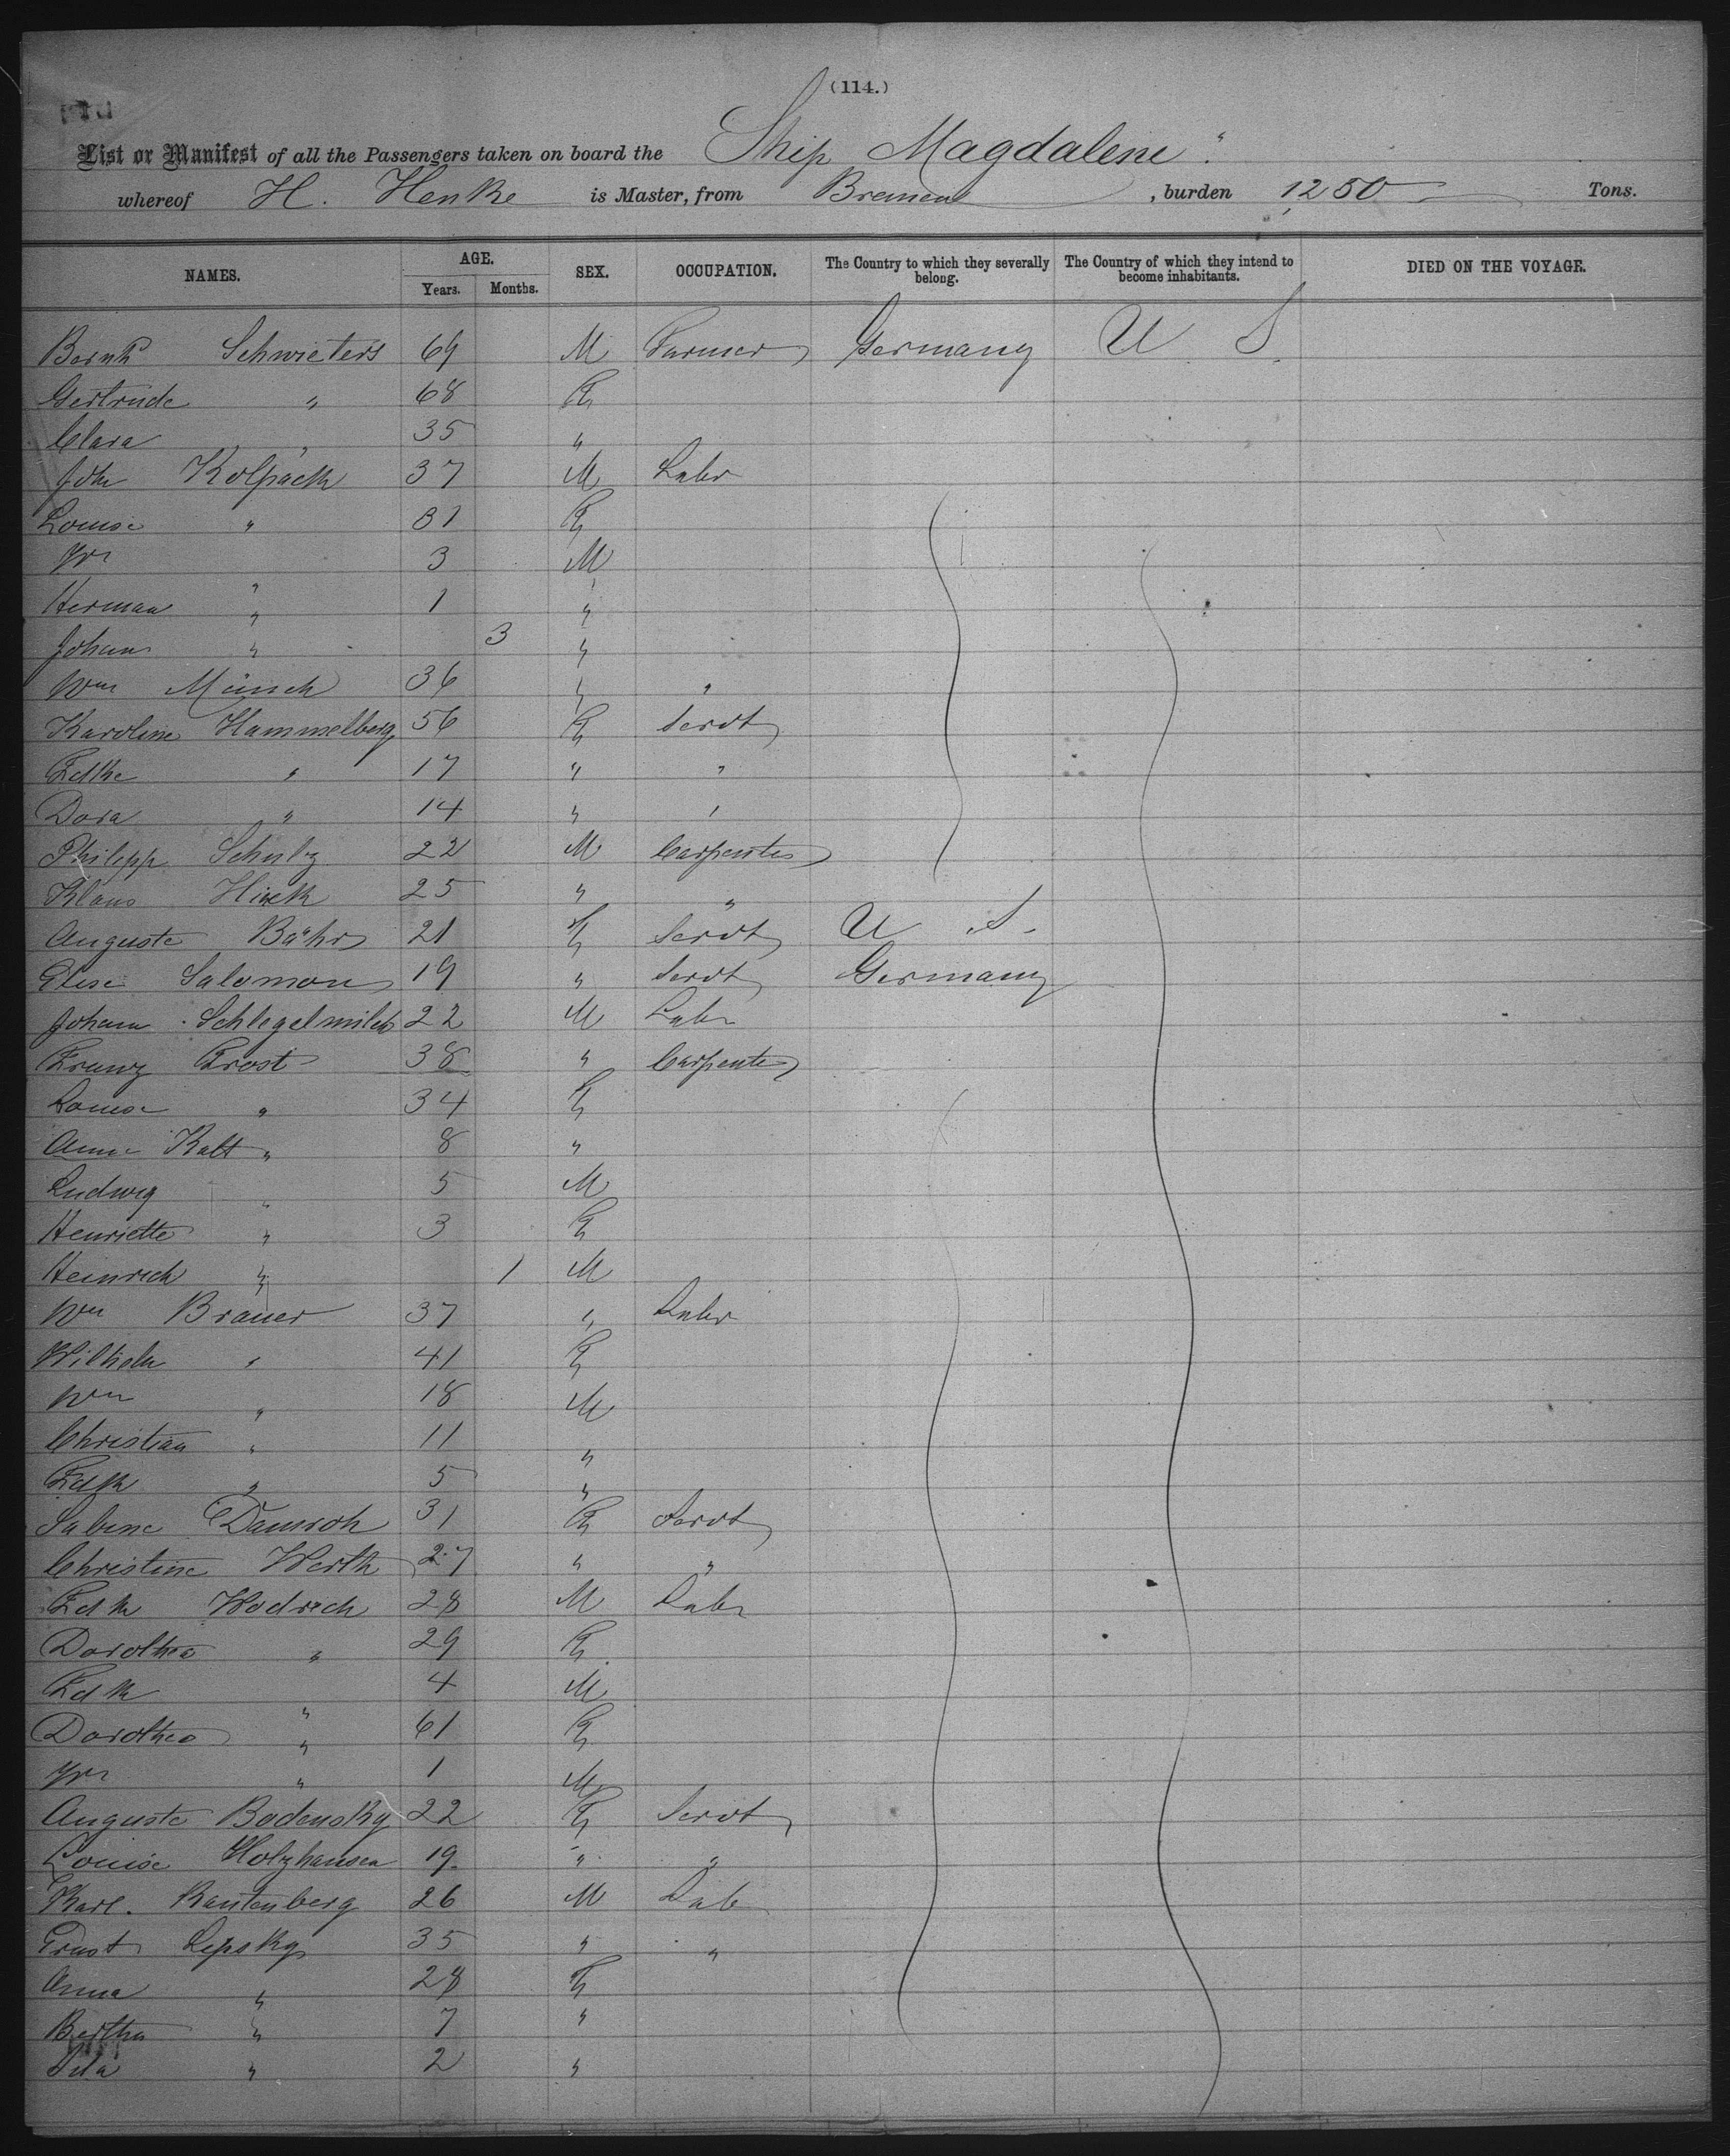 (114.)
List or Manifest of all the Passengers taken on board the Ship Magdalene"
whereof H. Henke is Master, from Bremen, burden 1250 Tons.
NAMES. AGE. Years. Months. SEX. OCCUPATION. The Country to which they severally belong. The Country of which they intend to become inhabitants. DIED ON THE VOYAGE.
Bernh Schwieters 69 M Farmer Germany U S.
Gertrude " 68 F
Clara " 35 "
Joh Kolpack 37 M Labr
Louise " 31 F
3 M
Herman " 1 "
Johann " 3 "
Wm Münsch 36 " "
Karoline Hammelberg 56 F Servt
" 17 " "
Dora " 14 " "
Philipp Schulz 22 M Carpenter
Klaus 25 " "
Auguste Bährs 21 F Servt U S.
Elise Salomon 19 " Servt Germany
Johann Schlegelmilch 22 M Labr
Franz Frost 38 " Carpenter
Louise " 34 F
Anna Kath " 8 "
Ludwig " 5 M
Henriette " 3 F
Heinrich " 1 M
Wm Brauer 37 " Labr
Wilhelm " 41 F
Wm " 18 M
Christian " 11 "
Fdk " 5 "
Sabine 31 F Servt
Christine Werth 27 " "
Fdk Wodrich 28 M Labr
Dorothea " 29 F
Fdk " 4 M
Dorothea " 61 F
" 1 M
Auguste Bodensky 22 F Servt
Louise Holzhausen 19. " "
Karl. Rautenberg 26 M Lab
Ernst Lipsky 35 " "
Anna " 28 F
Bertha " 7 "
" 2 "